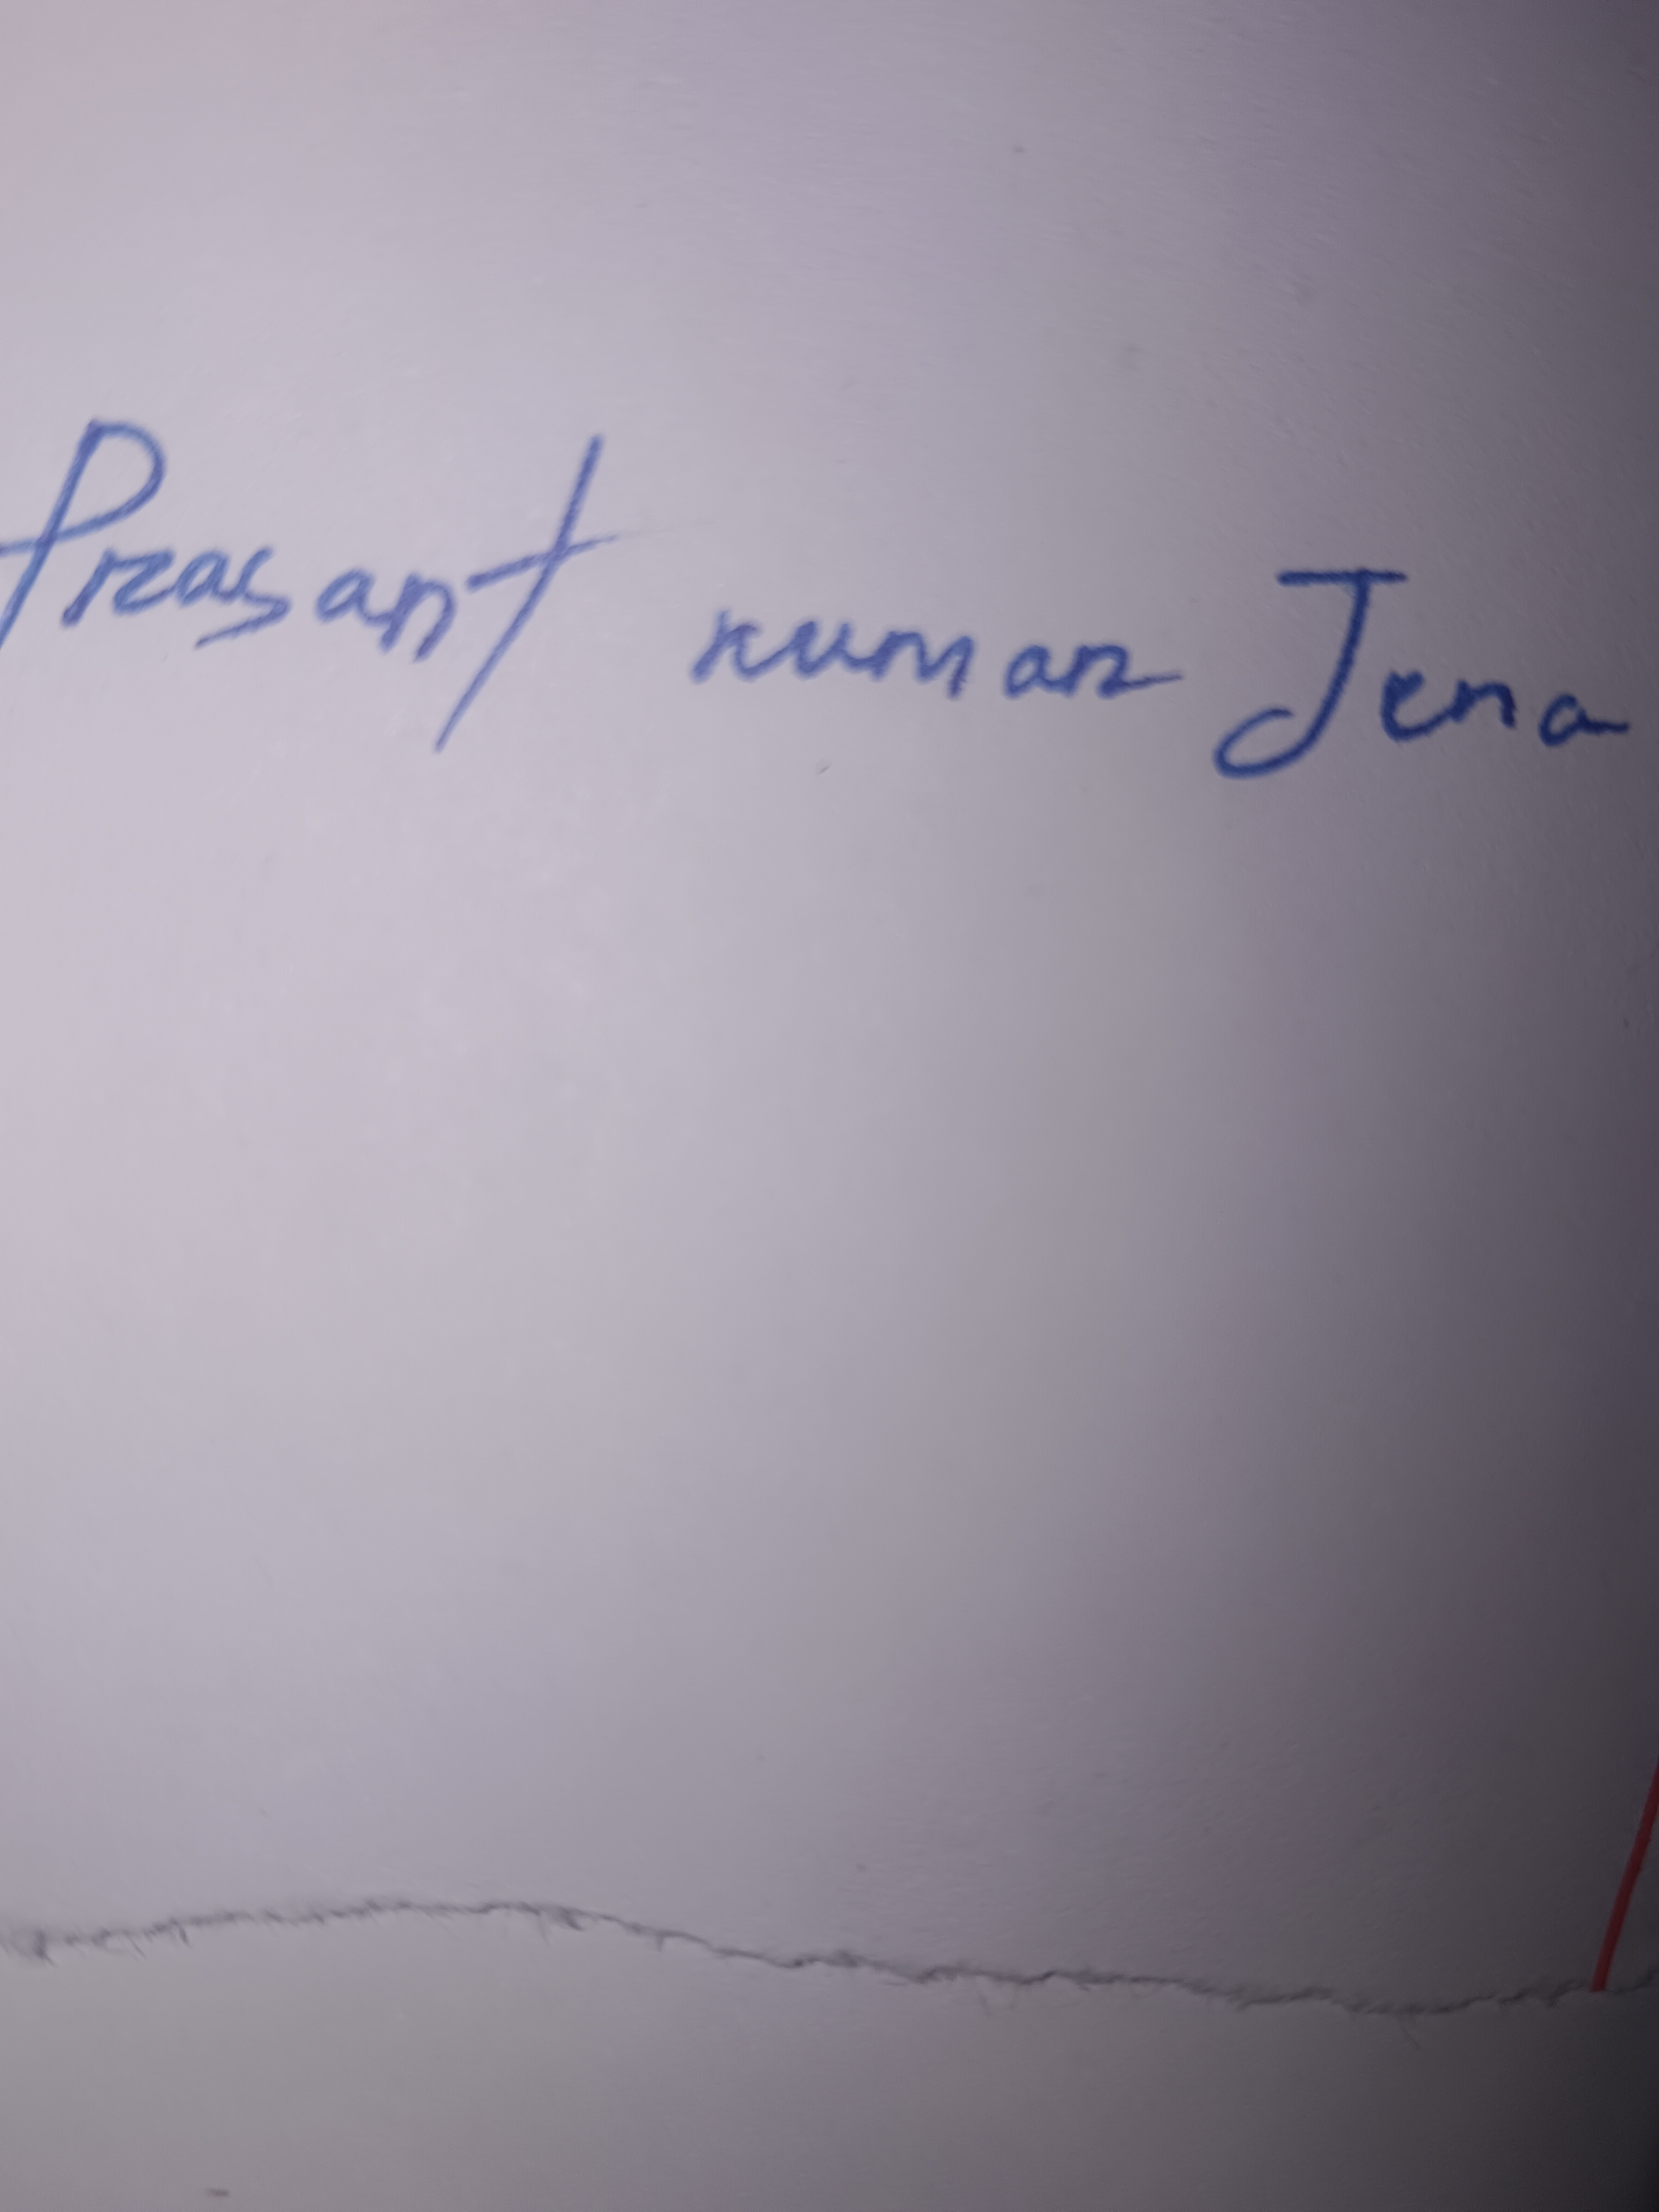 Prasant kumar Jena